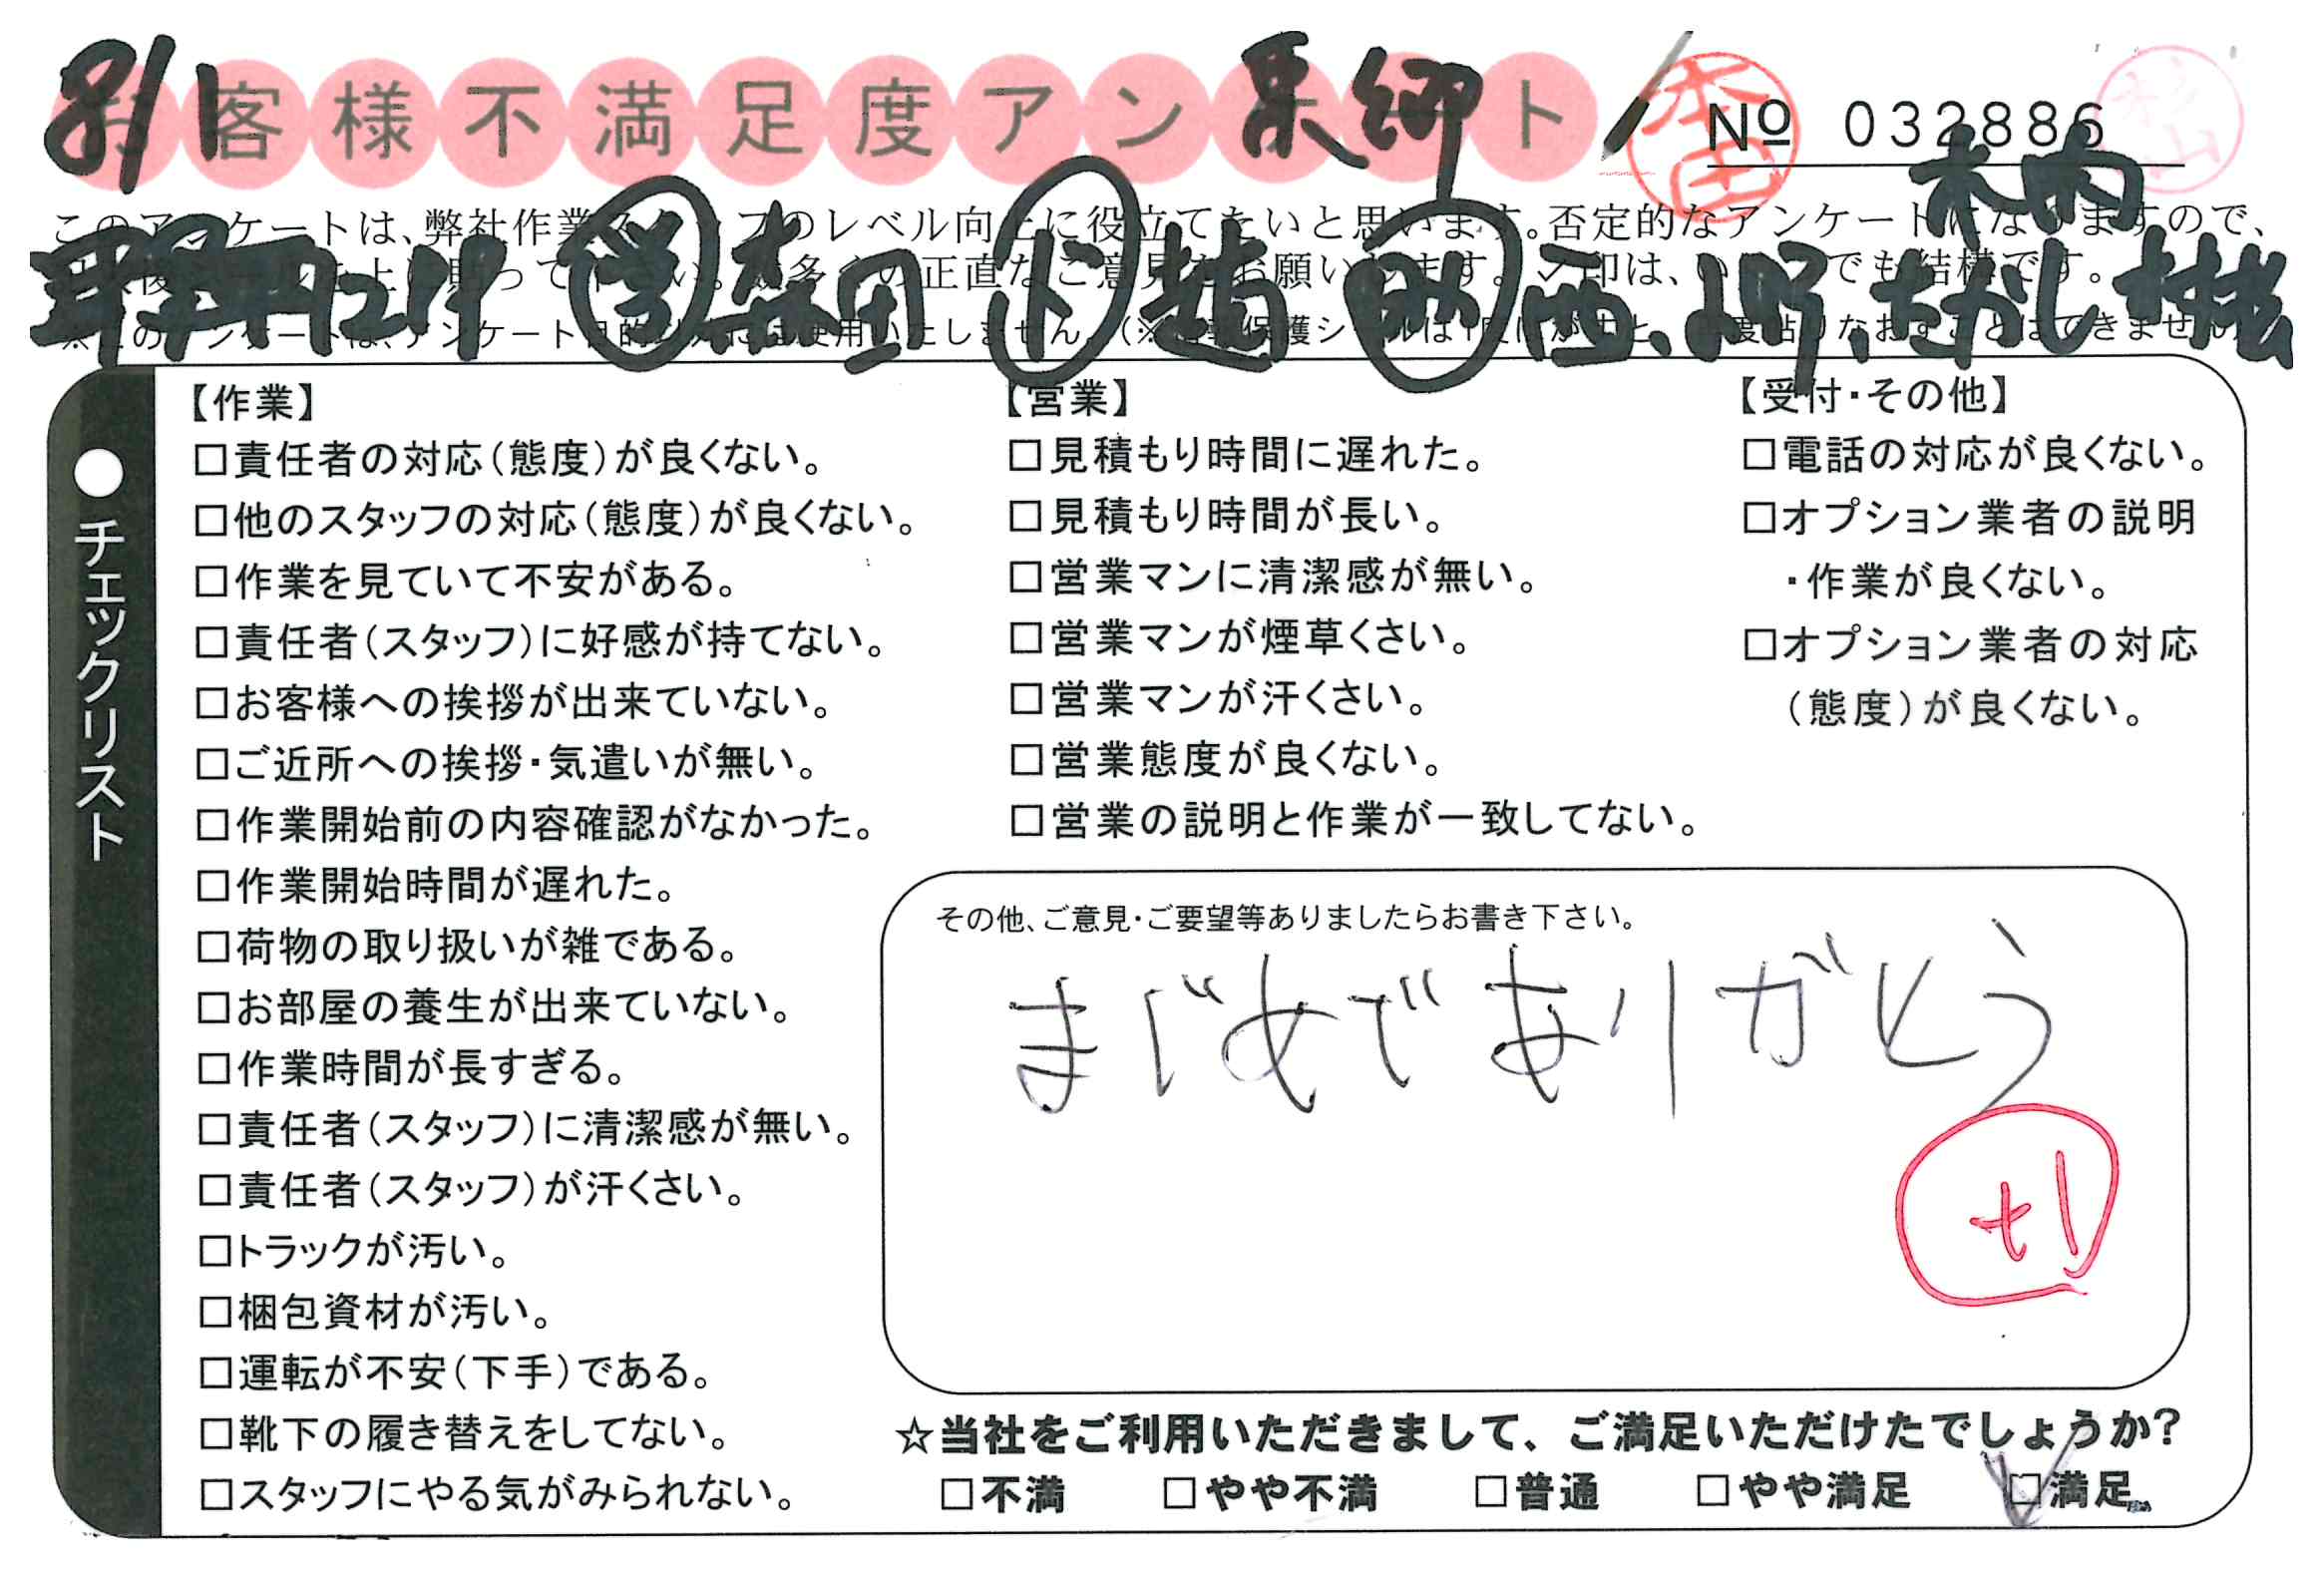 8/1
お客様不満足度アンケート
本田
№ 032886
木内
このアンケートは、弊社作業スタッフのレベル向上に役立てたいと思います。否定的なアンケートになりますので、
営 森田 ト 趙 助 西、上野、たかし
【作業】
□責任者の対応(態度)が良くない。
□他のスタッフの対応(態度)が良くない。
□作業を見ていて不安がある。
□責任者(スタッフ)に好感が持てない。
□お客様への挨拶が出来ていない。
□ご近所への挨拶・気遣いが無い。
□作業開始前の内容確認がなかった。
□作業開始時間が遅れた。
□荷物の取り扱いが雑である。
□お部屋の養生が出来ていない。
□作業時間が長すぎる。
□責任者(スタッフ)に清潔感が無い。
□責任者(スタッフ)が汗くさい。
□トラックが汚い。
□梱包資材が汚い。
□運転が不安(下手)である。
□靴下の履き替えをしてない。
□スタッフにやる気がみられない。
【営業】
□見積もり時間に遅れた。
□見積もり時間が長い。
□営業マンに清潔感が無い。
□営業マンが煙草くさい。
□営業マンが汗くさい。
□営業態度が良くない。
□営業の説明と作業が一致してない。
【受付・その他】
□電話の対応が良くない。
□オプション業者の説明
・作業が良くない。
□オプション業者の対応
(態度)が良くない。
●チェックリスト
その他、ご意見・ご要望等ありましたらお書き下さい。
まじめでありがとう
+1
☆当社をご利用いただきまして、ご満足いただけたでしょうか?
□不満 □やや不満 □普通 □やや満足 □満足